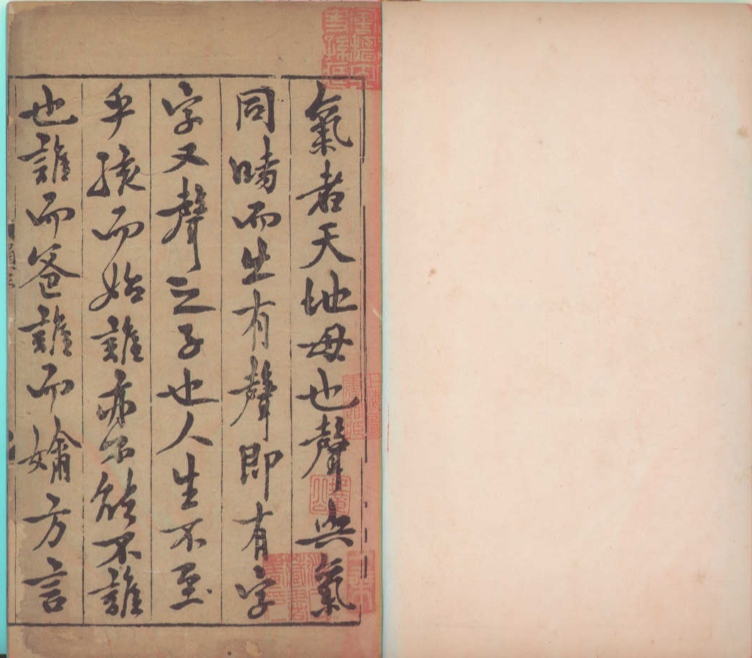 氣者天地母也聲與氣
同時而出有聲即有字
字又聲之子也人生不至
乎孩而始誰亦不能不誰
也誰而爸誰而㜷方言